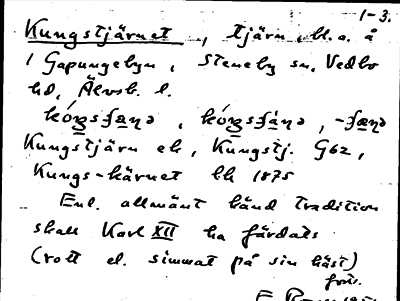 1-3.
Kungstjärnet, tjärn, bl.a. å
i Gapungebyn, Steneby sn, Vedbo
hd, Älvsb. l.
Kungstjärn ek, Kungstj. G62,
Kungs-kärnet bk 1875
Enl. allmänt känd tradition
skall Karl XII ha färdats
(rott el. simmat på sin häst)
förs.